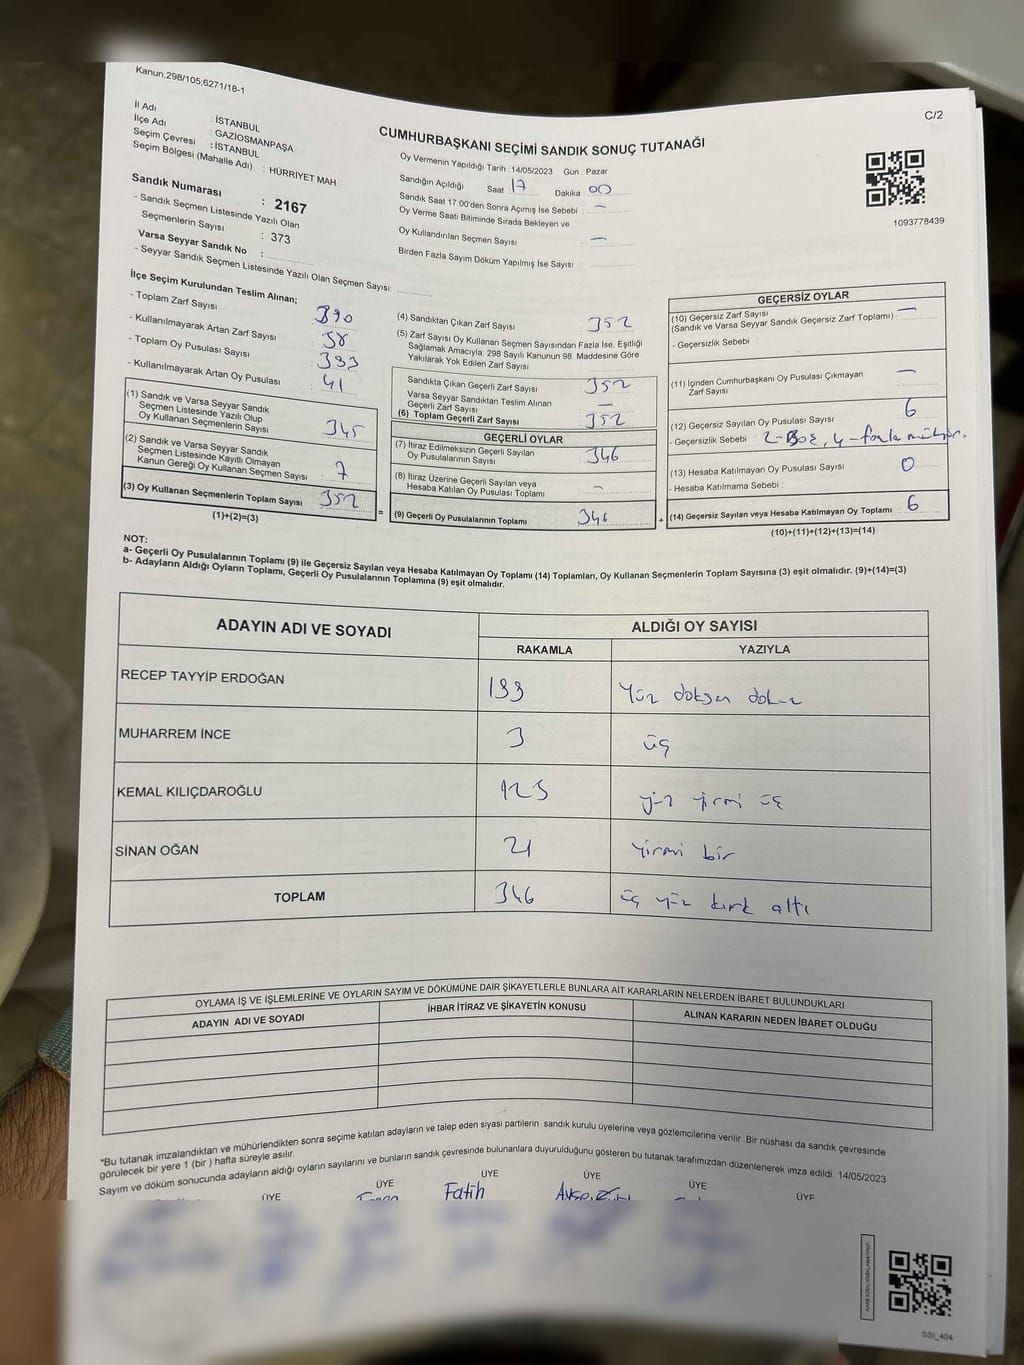 Kanun;298/105;6271/18-1
C/2
İl Adı : İSTANBUL
İlçe Adı : GAZİOSMANPAŞA
Seçim Çevresi : İSTANBUL
Seçim Bölgesi (Mahalle Adı) : HÜRRİYET MAH.
Sandık Numarası : 2167
- Sandık Seçmen Listesinde Yazılı Olan
Seçmenlerin Sayısı : 373
Varsa Seyyar Sandık No :
- Seyyar Sandık Seçmen Listesinde Yazılı Olan Seçmen Sayısı:
CUMHURBAŞKANI SEÇİMİ SANDIK SONUÇ TUTANAĞI
Oy Vermenin Yapıldığı Tarih : 14/05/2023 Gün : Pazar
Sandığın Açıldığı Saat 17 Dakika : 00
Sandık Saat 17:00'den Sonra Açımış İse Sebebi : –
Oy Verme Saati Bitiminde Sırada Bekleyen ve
Oy Kullandırılan Seçmen Sayısı : –
Birden Fazla Sayım Döküm Yapılmış İse Sayısı :
1093778439
İlçe Seçim Kurulundan Teslim Alınan;
- Toplam Zarf Sayısı : 390
- Kullanılmayarak Artan Zarf Sayısı : 38
- Toplam Oy Pusulası Sayısı : 393
- Kullanılmayarak Artan Oy Pusulası : 41
(1) Sandık ve Varsa Seyyar Sandık
Seçmen Listesinde Yazılı Olup
Oy Kullanan Seçmenlerin Sayısı 345
(2) Sandık ve Varsa Seyyar Sandık
Seçmen Listesinde Kayıtlı Olmayan
Kanun Gereği Oy Kullanan Seçmen Sayısı 7
(3) Oy Kullanan Seçmenlerin Toplam Sayısı 352
(1)+(2)=(3)
=
(4) Sandıktan Çıkan Zarf Sayısı : 352
(5) Zarf Sayısı Oy Kullanan Seçmen Sayısından Fazla İse, Eşitliği
Sağlamak Amacıyla; 298 Sayılı Kanunun 98. Maddesine Göre
Yakılarak Yok Edilen Zarf Sayısı
Sandıkta Çıkan Geçerli Zarf Sayısı : 352
Varsa Seyyar Sandıktan Teslim Alınan
Geçerli Zarf Sayısı : –
(6) Toplam Geçerli Zarf Sayısı : 352
GEÇERLİ OYLAR
(7) İtiraz Edilmeksizin Geçerli Sayılan
Oy Pusulalarının Sayısı : 346
(8) İtiraz Üzerine Geçerli Sayılan veya
Hesaba Katılan Oy Pusulası Toplamı : –
(9) Geçerli Oy Pusulalarının Toplamı 346
+
GEÇERSİZ OYLAR
(10) Geçersiz Zarf Sayısı –
(Sandık ve Varsa Seyyar Sandık Geçersiz Zarf Toplamı) :
- Geçersizlik Sebebi :
(11) İçinden Cumhurbaşkanı Oy Pusulası Çıkmayan
Zarf Sayısı –
(12) Geçersiz Sayılan Oy Pusulası Sayısı : 6
- Geçersizlik Sebebi : 2-Boş, 4-fazla mühür.
(13) Hesaba Katılmayan Oy Pusulası Sayısı : 0
- Hesaba Katılmama Sebebi :
(14) Geçersiz Sayılan veya Hesaba Katılmayan Oy Toplamı : 6
(10)+(11)+(12)+(13)=(14)
NOT:
a- Geçerli Oy Pusulalarının Toplamı (9) ile Geçersiz Sayılan veya Hesaba Katılmayan Oy Toplamı (14) Toplamları, Oy Kullanan Seçmenlerin Toplam Sayısına (3) eşit olmalıdır. (9)+(14)=(3)
b- Adayların Aldığı Oyların Toplamı, Geçerli Oy Pusulalarının Toplamına (9) eşit olmalıdır.
ADAYIN ADI VE SOYADI
ALDIĞI OY SAYISI
RAKAMLA YAZIYLA
RECEP TAYYİP ERDOĞAN 199 Yüz doksan dokuz
MUHARREM İNCE 3 üç
KEMAL KILIÇDAROĞLU 123 yüz yirmi üç
SİNAN OĞAN 21 Yirmi bir
TOPLAM 346 üç yüz kırk altı
OYLAMA İŞ VE İŞLEMLERİNE VE OYLARIN SAYIM VE DÖKÜMÜNE DAİR ŞİKAYETLERLE BUNLARA AİT KARARLARIN NELERDEN İBARET BULUNDUKLARI
ADAYIN ADI VE SOYADI İHBAR İTİRAZ VE ŞİKAYETİN KONUSU ALINAN KARARIN NEDEN İBARET OLDUĞU
*Bu tutanak imzalandıktan ve mühürlendikten sonra seçime katılan adayların ve talep eden siyasi partilerin sandık kurulu üyelerine veya gözlemcilerine verilir. Bir nüshası da sandık çevresinde
görülecek bir yere 1 (bir) hafta süreyle asılır.
Sayım ve döküm sonucunda adayların aldığı oyların sayılarını ve bunların sandık çevresinde bulunanlara duyurulduğunu gösteren bu tutanak tarafımızdan düzenlenerek imza edildi. 14/05/2023
ÜYE ÜYE ÜYE ÜYE ÜYE ÜYE
Fatih
SSI_404